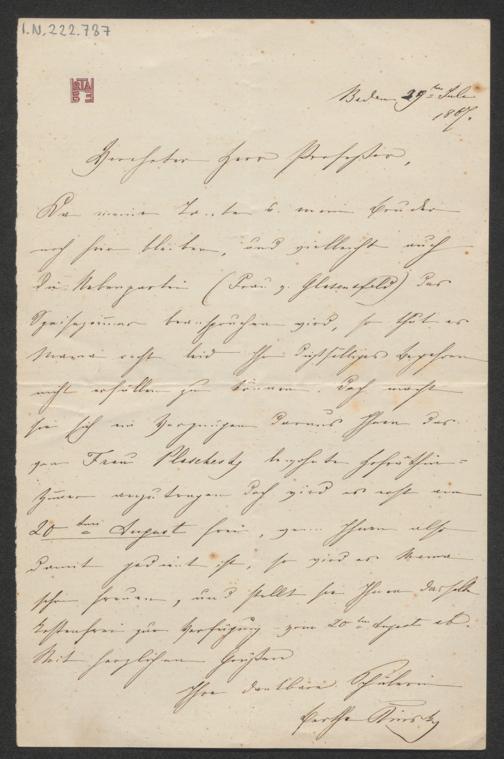 I.N. 222.787
Baden 29ten Juli
1867.
Verehrter Herr Professor,
Da meine Tante u. mein Bruder
noch hier bleiben, und vielleicht auch
die Nebenpartei (Frau v. ) das
Speisezimmer beanspruchen wird, so thut es
Mama recht leid Ihr Begehren
nicht erfüllen zu können. Doch macht
sie sich ein Vergnügen daraus Ihnen das
von Frau bewohnte
Zimmer anzutragen doch wird es erst am
20ten August frei, wenn Ihnen also
damit gedient ist, so wird es Mama
sehr freuen, und stellt sie Ihnen dasselbe
kostenfrei zur Verfügung vom 20ten August ab.
Mit herzlichen Grüßen
Ihre dankbare Schülerin
Bertha Kinsky